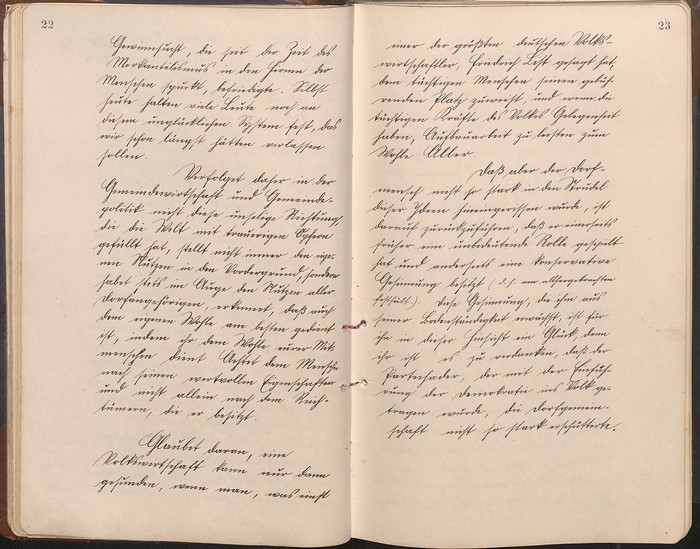 22
Gewinnsucht, die seit der Zeit des
Merkantilismus in den Hirnen der
Menschen spukt, befriedigte. Selbst
heute halten viele Leute noch an
diesem unglücklichen System fest, das
wir schon längst hätten verlassen
sollen.
Verfolget daher in der
Gemeindewirtschaft und Gemeinde-
politik nicht diese unselige Richtung,
die die Welt mit traurigen Opfern
gefüllt hat, stellt nicht immer den eige-
nen Nutzen in den Vordergrund, sondern
habet stets im Auge den Nutzen aller
Dorfangehörigen, erkennet, daß auch
dem eigenen Wohle am besten gedient
ist, indem ihr dem Wohle eurer Mit-
menschen dient. Achtet den Menschen
nach seinen wertvollen Eigenschaften
und nicht allein nach dem Reich-
tümern, die er besitzt.
Glaubet daran, eine
Volkswirtschaft kann nur dann
gesunden, wenn man, was einst
23
einer der größten deutschen Volks-
wirtschaftler, Friedrich List gesagt hat,
dem tüchtigen Menschen seinen gebüh-
renden Platz zuweist, und wenn die
tüchtigen Kräfte des Volkes Gelegenheit
haben, Aufbauarbeit zu leisten zum
Wohle Aller.
Daß aber der Dorf-
mensch nicht so stark in den Strudel
dieser Ideen hineingerissen wurde, ist
darauf zurückzuführen, daß er einerseits
früher eine unbedeutende Rolle gespielt
hat und anderseits eine konservative
Gesinnung besitzt (d.h. am althergebrachten
festhält). Diese Gesinnung, die ihm aus
seiner Bodenständigkeit erwächst, ist für
ihn in dieser Hinsicht ein Glück, denn
ihr ist es zu verdanken, daß der
Parteihader, der mit der Einfüh-
rung der Demokratie ins Volk ge-
tragen wurde, die Dorfgemein-
schaft nicht so stark erschütterte.